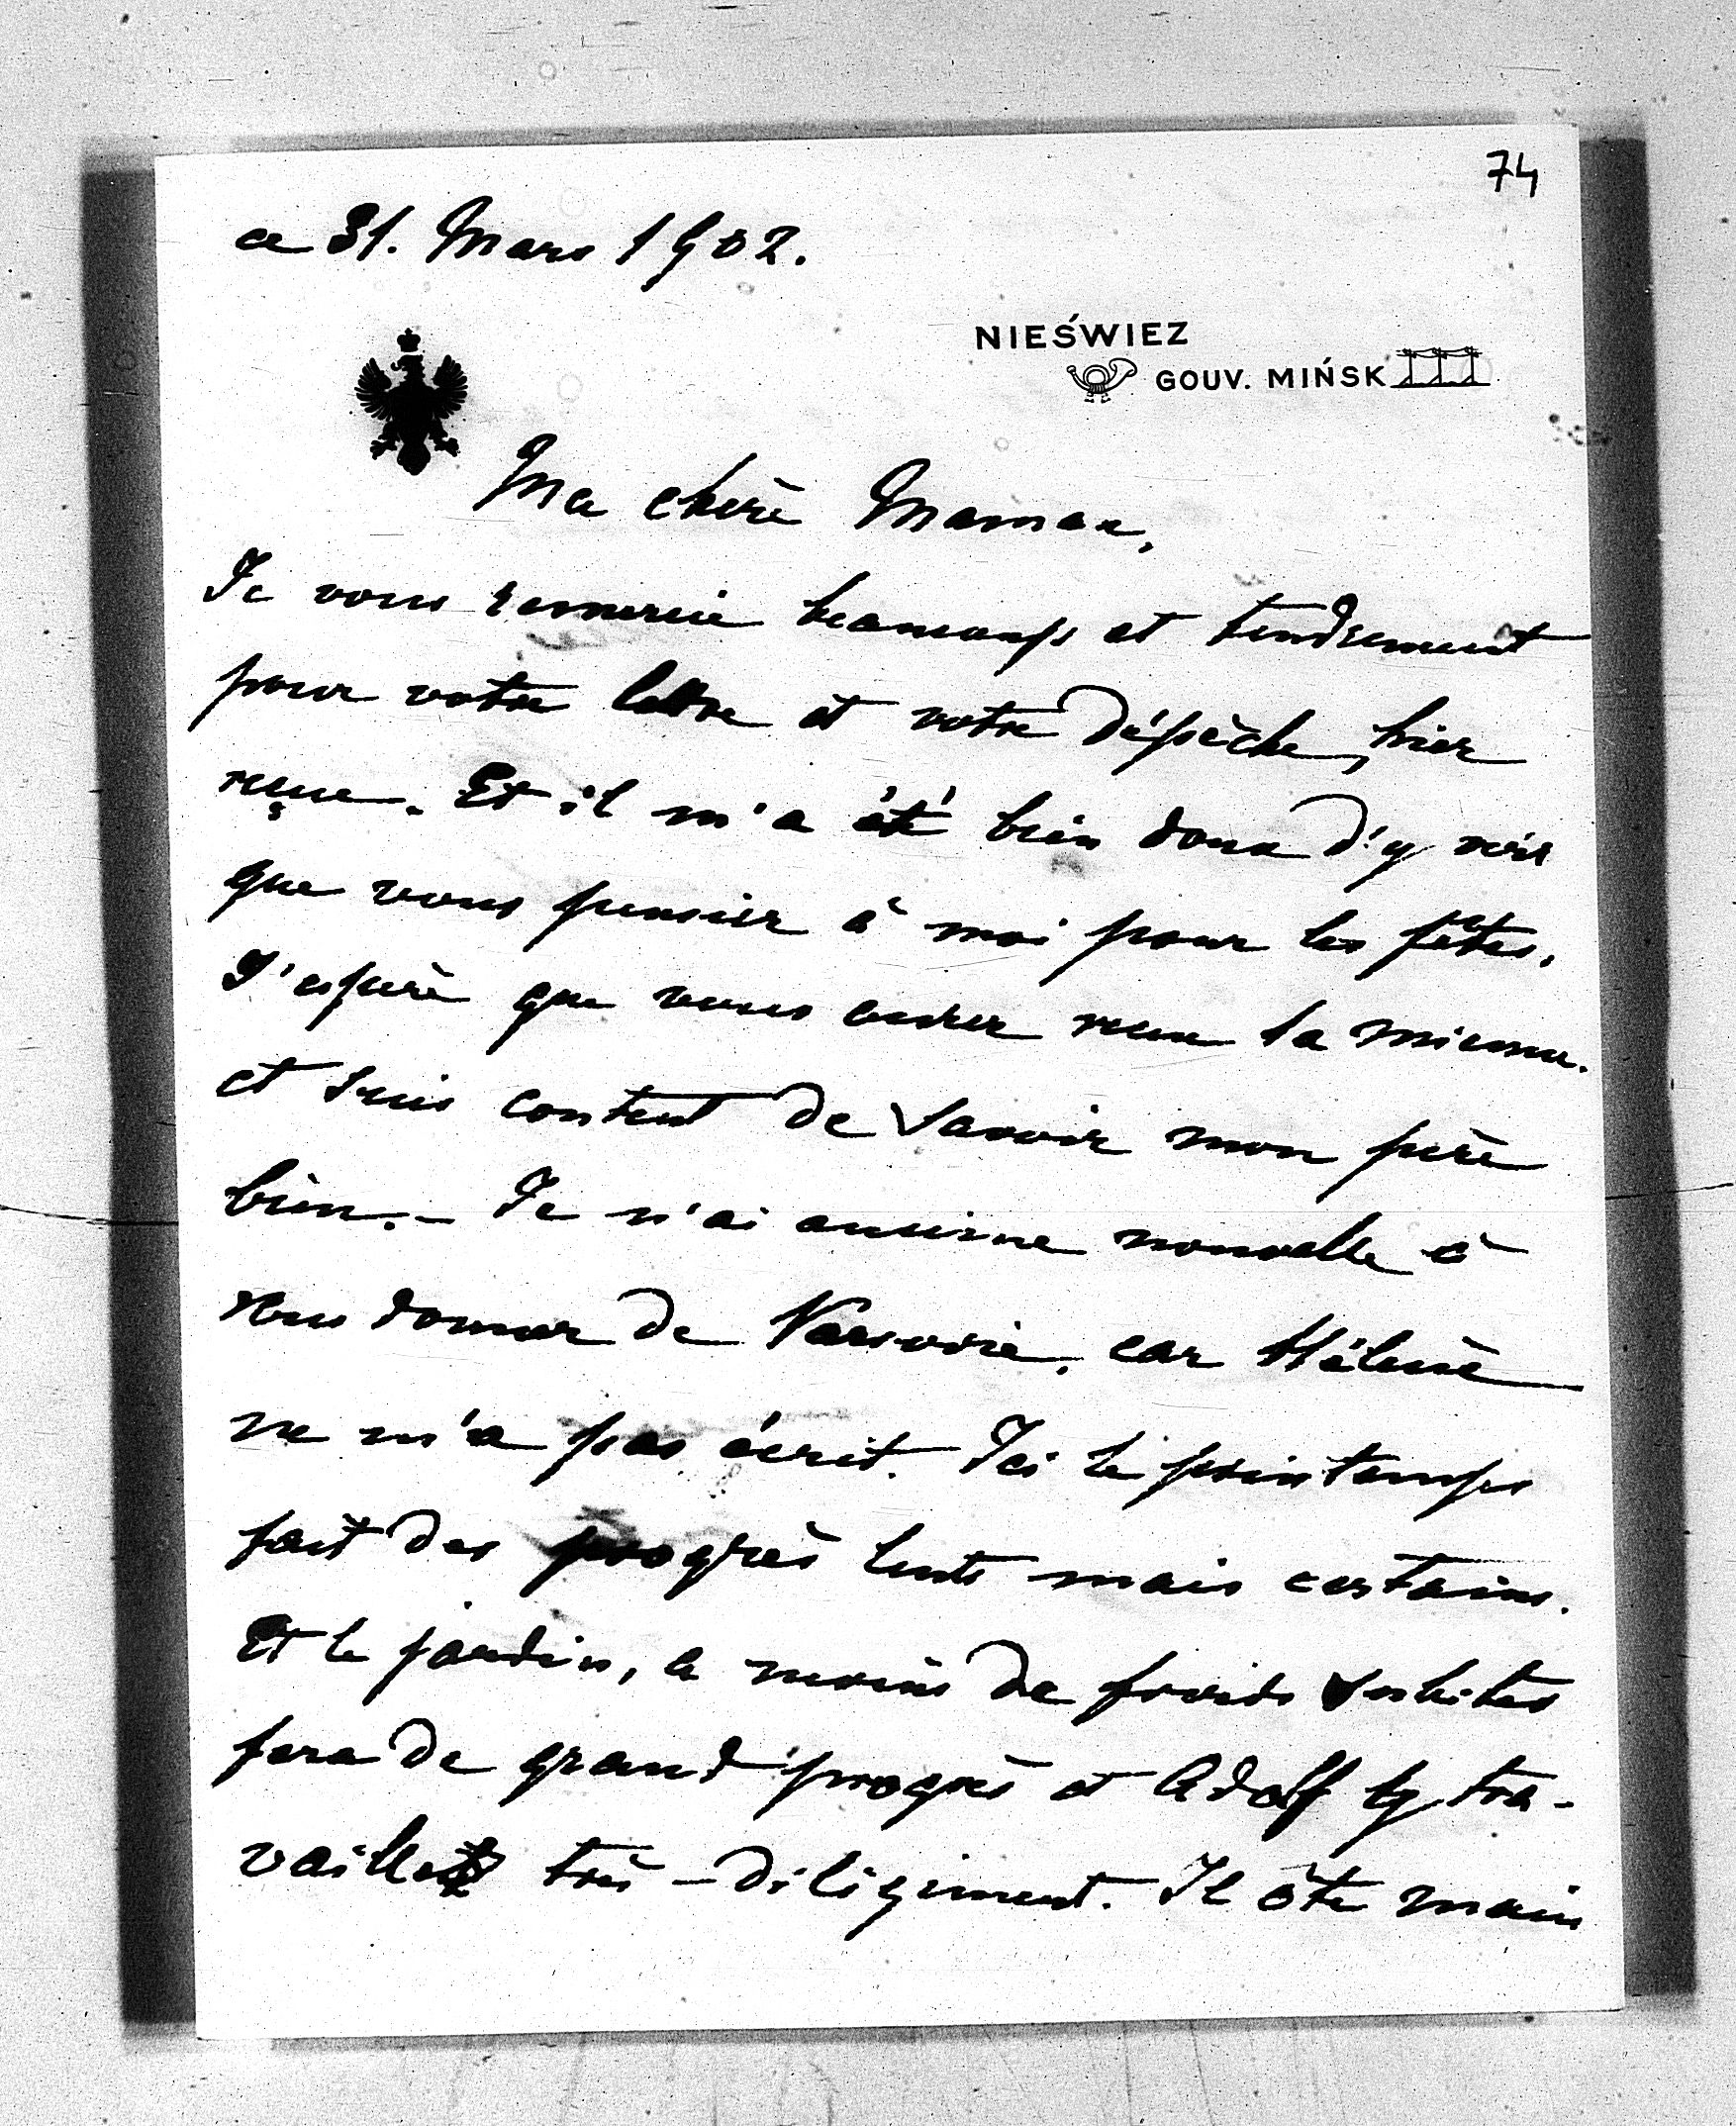 74
ce 31. Mars 1902.
NIEŚWIEZ
GOUV. MIŃSK
Ma chère Maman,
Je vous remercie beaucoup et tendrement
pour votre lettre et votre dépèche, hier
reçue. Et il m'a été bien doux d'y voir
que vous pensiez à moi pour les fêtes.
J'espère que vous aurez reçu la mienne.
et suis content de savoir mon père
bien. – Je n'ai aucune nouvelle à
vous donner de Varsovie, car Hélène
ne m'a pas écrit. Ici le printemps
fait des progrès lents mais certains.
Et le jardin, a moins de froids subites
fera de grand progrès et Adolf y tra-
vaille très-diligement. Il ôte mais